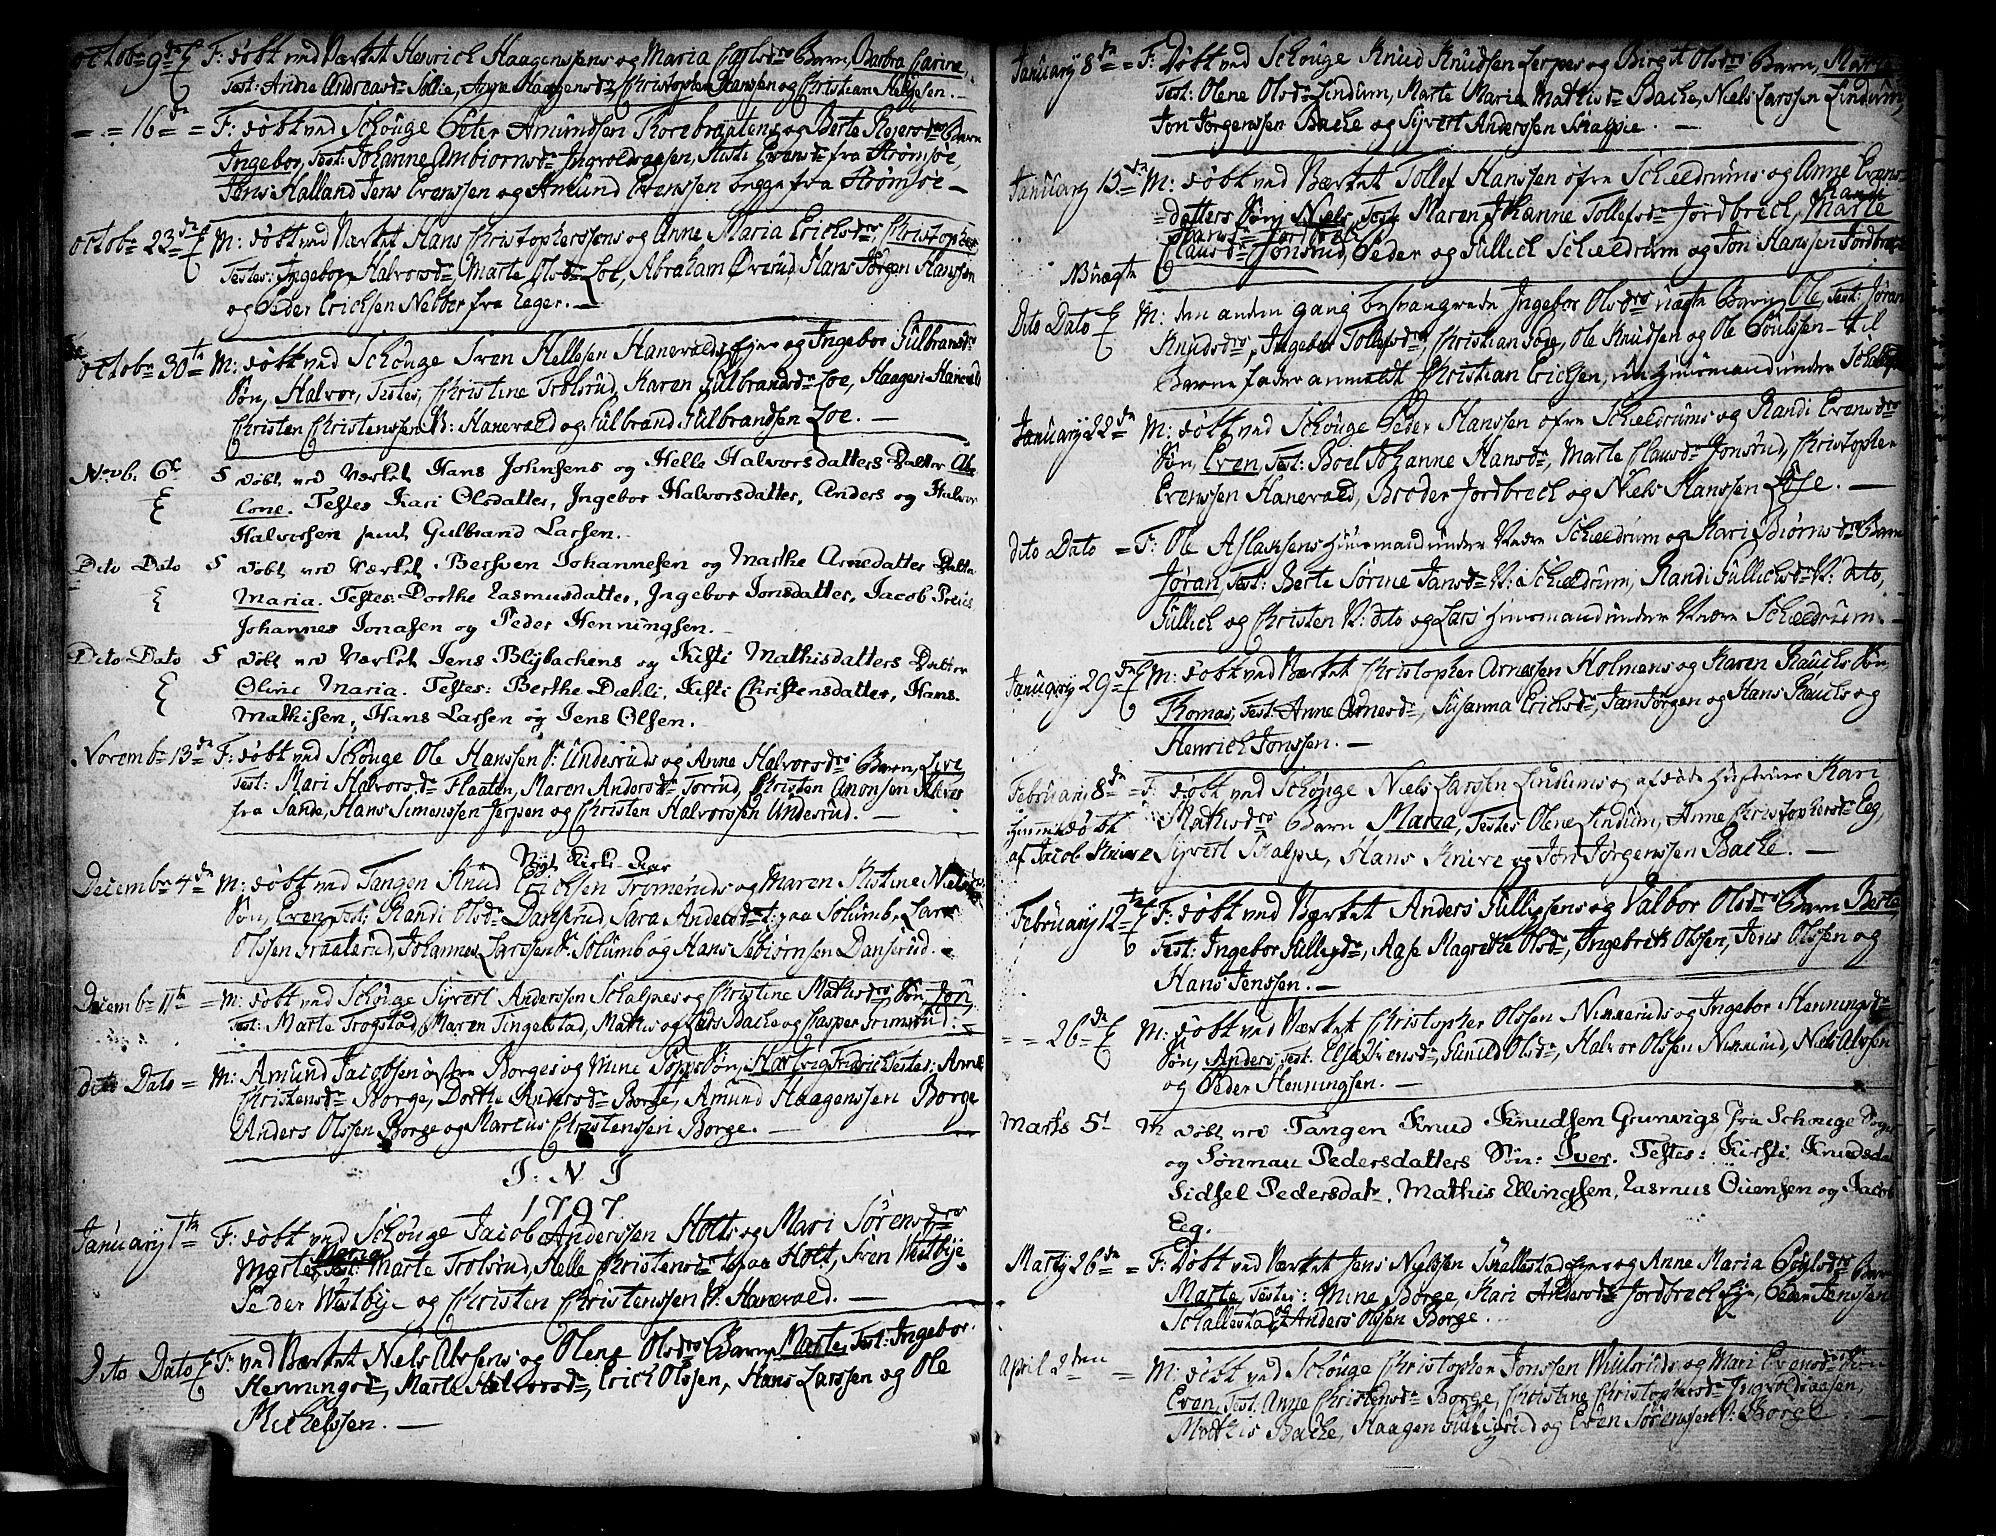 Octob 9de F: døbt ved Værket Henrich Haagenssens og Maria Carlsdrs Barn, Barbra Carine,
Test: Andne Andreasdr Sollie, Haagensdr, Christopher Hanssen og Christian Helgesen.
16de = F: døbt ved Schouge Peter Amundssen Thorebraatens og Berte Barn
Ingebor, Test: Johanne Ambiornsdr Ingvoldsaasen, Kisti Evensdr fra Strømsøe,
Jens Halland Jens Evenssen og Amund Evenssen begge fra Strømsøe
Octob 23de M: døbt ved Værket Hans Christopherssens og Anne Maria Ericksdrs Christopher
Testes: Ingebor Halvorsdr Marte Olsdr Loe, Abraham Øverud, Hans Jørgen Hanssen
og Peder Erichsen Nebber fra Eeger.
Octob 30te M: døbt ved Schouge Sven Hellesen Hanevalds og Ingebor Gulbransdrs
Søn, Halvor, Testes, Christine Trolsrud, Karen Gulbrandsdr Loe, Haagen Hanevald
Christen Christenssen V: Hanevald og Gulbrand Gulbrandsen Loe.
Novb. 6te døbt ved Værket Hans Johnsens og Helle Halvorsdatters Datter
Testes Kari Olsdatter, Ingebor Halvorsdatter, Anders og Halvor
Halvorsen samt Gulbrand Larsen.
Dito Dato døbt ved Værket Berswen Johannesen og Marthe Arnedatter Datter
Maria. Testes: Dorthe Rasmusdatter, Ingebor Jonsdatter, Jacob Preus
Johannes Jonasen og Peder Henningsen.
Dito Dato døbt ved Værket Jens Blybachens og Kisti Mathisdatters Datter
Olive Maria. Testes: Berthe Dæhli, Kisti Christensdatter, Hans
Mathisen, Hans Larsen og Jens Olsen.
Novemb 13de F: døbt ved Schouge Ole Hanssen V: Underuds og Anne Halvorsdrs Barn, Live
Test: Mari Halvorsdr Flaaten, Maren Andersdr Torrud, Christen Amonsen
fra Sande, Hans Simenssen Jerpen og Christen Halvorssen Underud.
Nyt Kirke-Aar
Decemb 4de M: døbt ved Tangen Knud Erichsen Tromeruds og Maren Kistine Niels
Søn, Even, Test: Randi Olsdr Danserud Sara Andersdr t: paa Solumb, Lars
Olssen Graaterud, Johannes Larssen V: Solumb og Hans Sebiørnsen Danserud.
Decemb 11te = M: døbt ved Schouge Syvert Anderssen Schalpes og Christine Mathisdrs Søn, Jon
Test: Marte Trogstad, Maren Tingelstad, Mathis og Lars Bache og Casper Grimsrud.
dito Dato = M: Amund Jacobsen østre Borges og Mine Søn, Hartvig Fridrich Testes: Anne
Christensdr Borge, Dorthe Andersdr Borge, Amund Haagenssen Borge
Anders Olssen Borge og Marcus Christenssen Borge.
I: N I
1797
January 1te F: døbt ved Schouge Jacob Anderssen Holts og Mari Sørensdrs
Marte Maria Test: Marte Trolsrud, Helle Christensdr t: paa Holt, Sven Westbye
Peder Westbye og Christen Christenssen V: Hanevald.
Dito Dato F: ved Værket Niels Alvsens og Olene Olsdrs Barn, Marte, Test: Ingebor
Henningsdr, Marte Halvorsdr, Erich Olssen, Hans Larssen og Ole
Michelssen.
January 8de = F: Døbt ved Schouge Knud Knudsen Jerpes og Birgit Olsdrs Barn, Marte
Test: Olene Olsdr Lindum, Marte Maria Mathisdr Bache, Niels Larssen Lindum,
Jon Jørgenssen Bache og Syvert Anderssen Skalpie.
January 15de M: døbt ved Værket Tollef Hanssen øfre Schieldrums og Anne Evens-
datters Søn, Niels, Test: Maren Johanne Tollefsdr Jordbrech, Marte
Clausdr Jonsrud, Peder og Gullich Schieldrum og Jon Hanssen Jordbrech
Nuægte
Dito Dato M: den anden gang besvangrede Ingebor Olsdrs uægte Barn Ole, Test: Jøran
Knudsdrs, Ingebor Tollefsdr, Christian Foss, Ole Knudsen og Ole Poulssen til
Barne fader anmeldt Christian Erichsen, en huusmand under
January 22de M: døbt ved Schouge Peder Hanssen øfre Schieldrums og Randi Evensdrs
Søn, Even, Test: Boel Johanne Hansdr, Marte Clausdr Jonsrud, Christopher
Evenssen Hanevald, Broder Jordbrech og Niels Hanssen
dito Dato = F: Ole Aslaksens huusmand under Nedre Schieldrum og Kari Biørnsdrs Barn
Jøran, Test: Berte Sørine Jansdr V: Schieldrum, Randi Gullichsdr V: dito,
Gullich og Christen V: dito og Lars huusmand under Nedre Schieldrum.
January 29de M: døbt ved Værket Christopher Arnessen Holmens og Karen Rauchs Søn,
Thomas, Test: Anne Arnesdr, Susanna Erichsdr, Jan Jørgen og Hans Rauchs og
Henrich Jonssen.
Februari 8de F: døbt ved Schouge Niels Larssen Lindums og afdøde hustrues Kari
hiemmedøbt Mathisdrs Barn Maria, Testes Olene Lindum, Anne Christophersdr Eeg,
af Jacob Knive Syvert Skalpie, Hans Knive og Jon Jørgenssen Bache.
February 12te F: døbt ved Værket Anders Gullichsens og Valbor Olsdrs Barn Berte,
Test: Ingebor Gullichsdr, Aase Magrethe Olsdr, Ingebreth Olssen, Jens Olssen og
Hans Jenssen.
26de M: døbt ved Værket Christopher Olssen Nimeruds og Ingebor Henningsdr
Søn, Anders, Test: Else Svensdr, Gunild Olsdr, Halvor Olssen Nimerud, Niels Alvsen
og Peder Henningsen.
Marts 5te M døbt ved Tangen Knud Knudsen Grunvigs fra Schouge
og Sønnau Pedersdatters Søn: Iver. Testes: Kirsti Knudsdatter
Sidsel Pedersdatr, Mathis Ellingssen, Rasmus Ouensen og Jacob
Eeg.
Marty 26de = F: Døbt ved Værket Jens Nielssen Skallestad og Anne Maria Poulsdrs Barn
Marte, Testes: Mine Borge, Kari Andersdr Jordbrech Eje, Peder Jenssen
Schallestad og Anders Olssen Borge.
April 2den = M: døbt ved Schouge Christopher Jonssen Wiulsruds og Mari Evensdrs Søn
Even, Test: Anne Christensdr Borge, Christine Christophersdr Ingvoldsaasen,
Mathis Bache, Haagen Gulligsrud og Even Sørenssen V: Borge